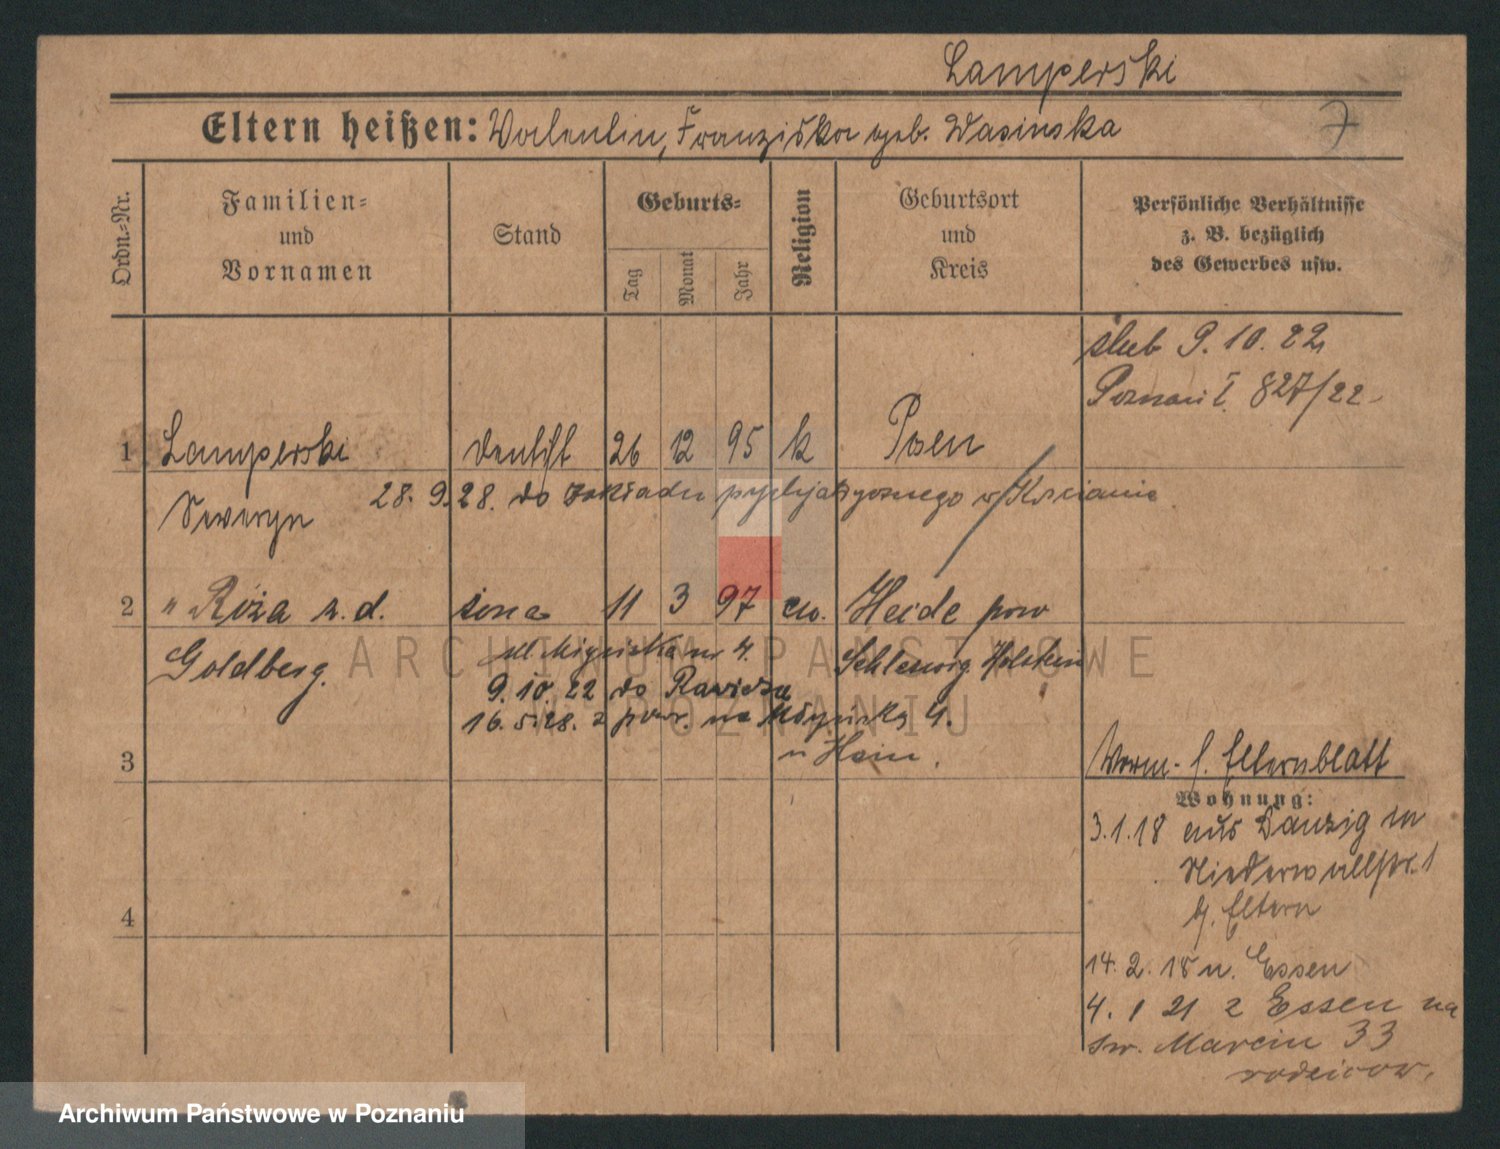 Lamperski
Eltern heißen: Valentin, Franziska geb. Wasinska
7
Ordn.-Nr.
Familien-
und
Vornamen
Stand
Geburts-
Tag
Monat
Jahr
Religion
Geburtsort
und
Kreis
Persönliche Verhältnisse
z. B. bezüglich
des Gewerbes usw.
ślub 9. 10. 22
Poznań I 827/22
1 Lamperski Dentist 26 12 95 k Posen
Seweryn 28. 9. 28. do Zakładu psychjatrycznego w Kościanie
2 " Róża z. d. żona 11 3 97 ew. Heide pow
Goldberg. nr 4. Schleswig Holstein
9. 10. 22 do Rawicza
16. 5. 28. z powr. na 4.
u Hein.
3
Vorm. s. Elternblatt
Wohnung:
3.1.18 aus Danzig
Niederwallstr. 1
b. Eltern
4
14. 2. 18 n. Essen
4. 1 21 z Essen na
św. Marcin 33
rodziców.
ARCHIWUM PAŃSTWOWE
W POZNANIU
Archiwum Państwowe w Poznaniu